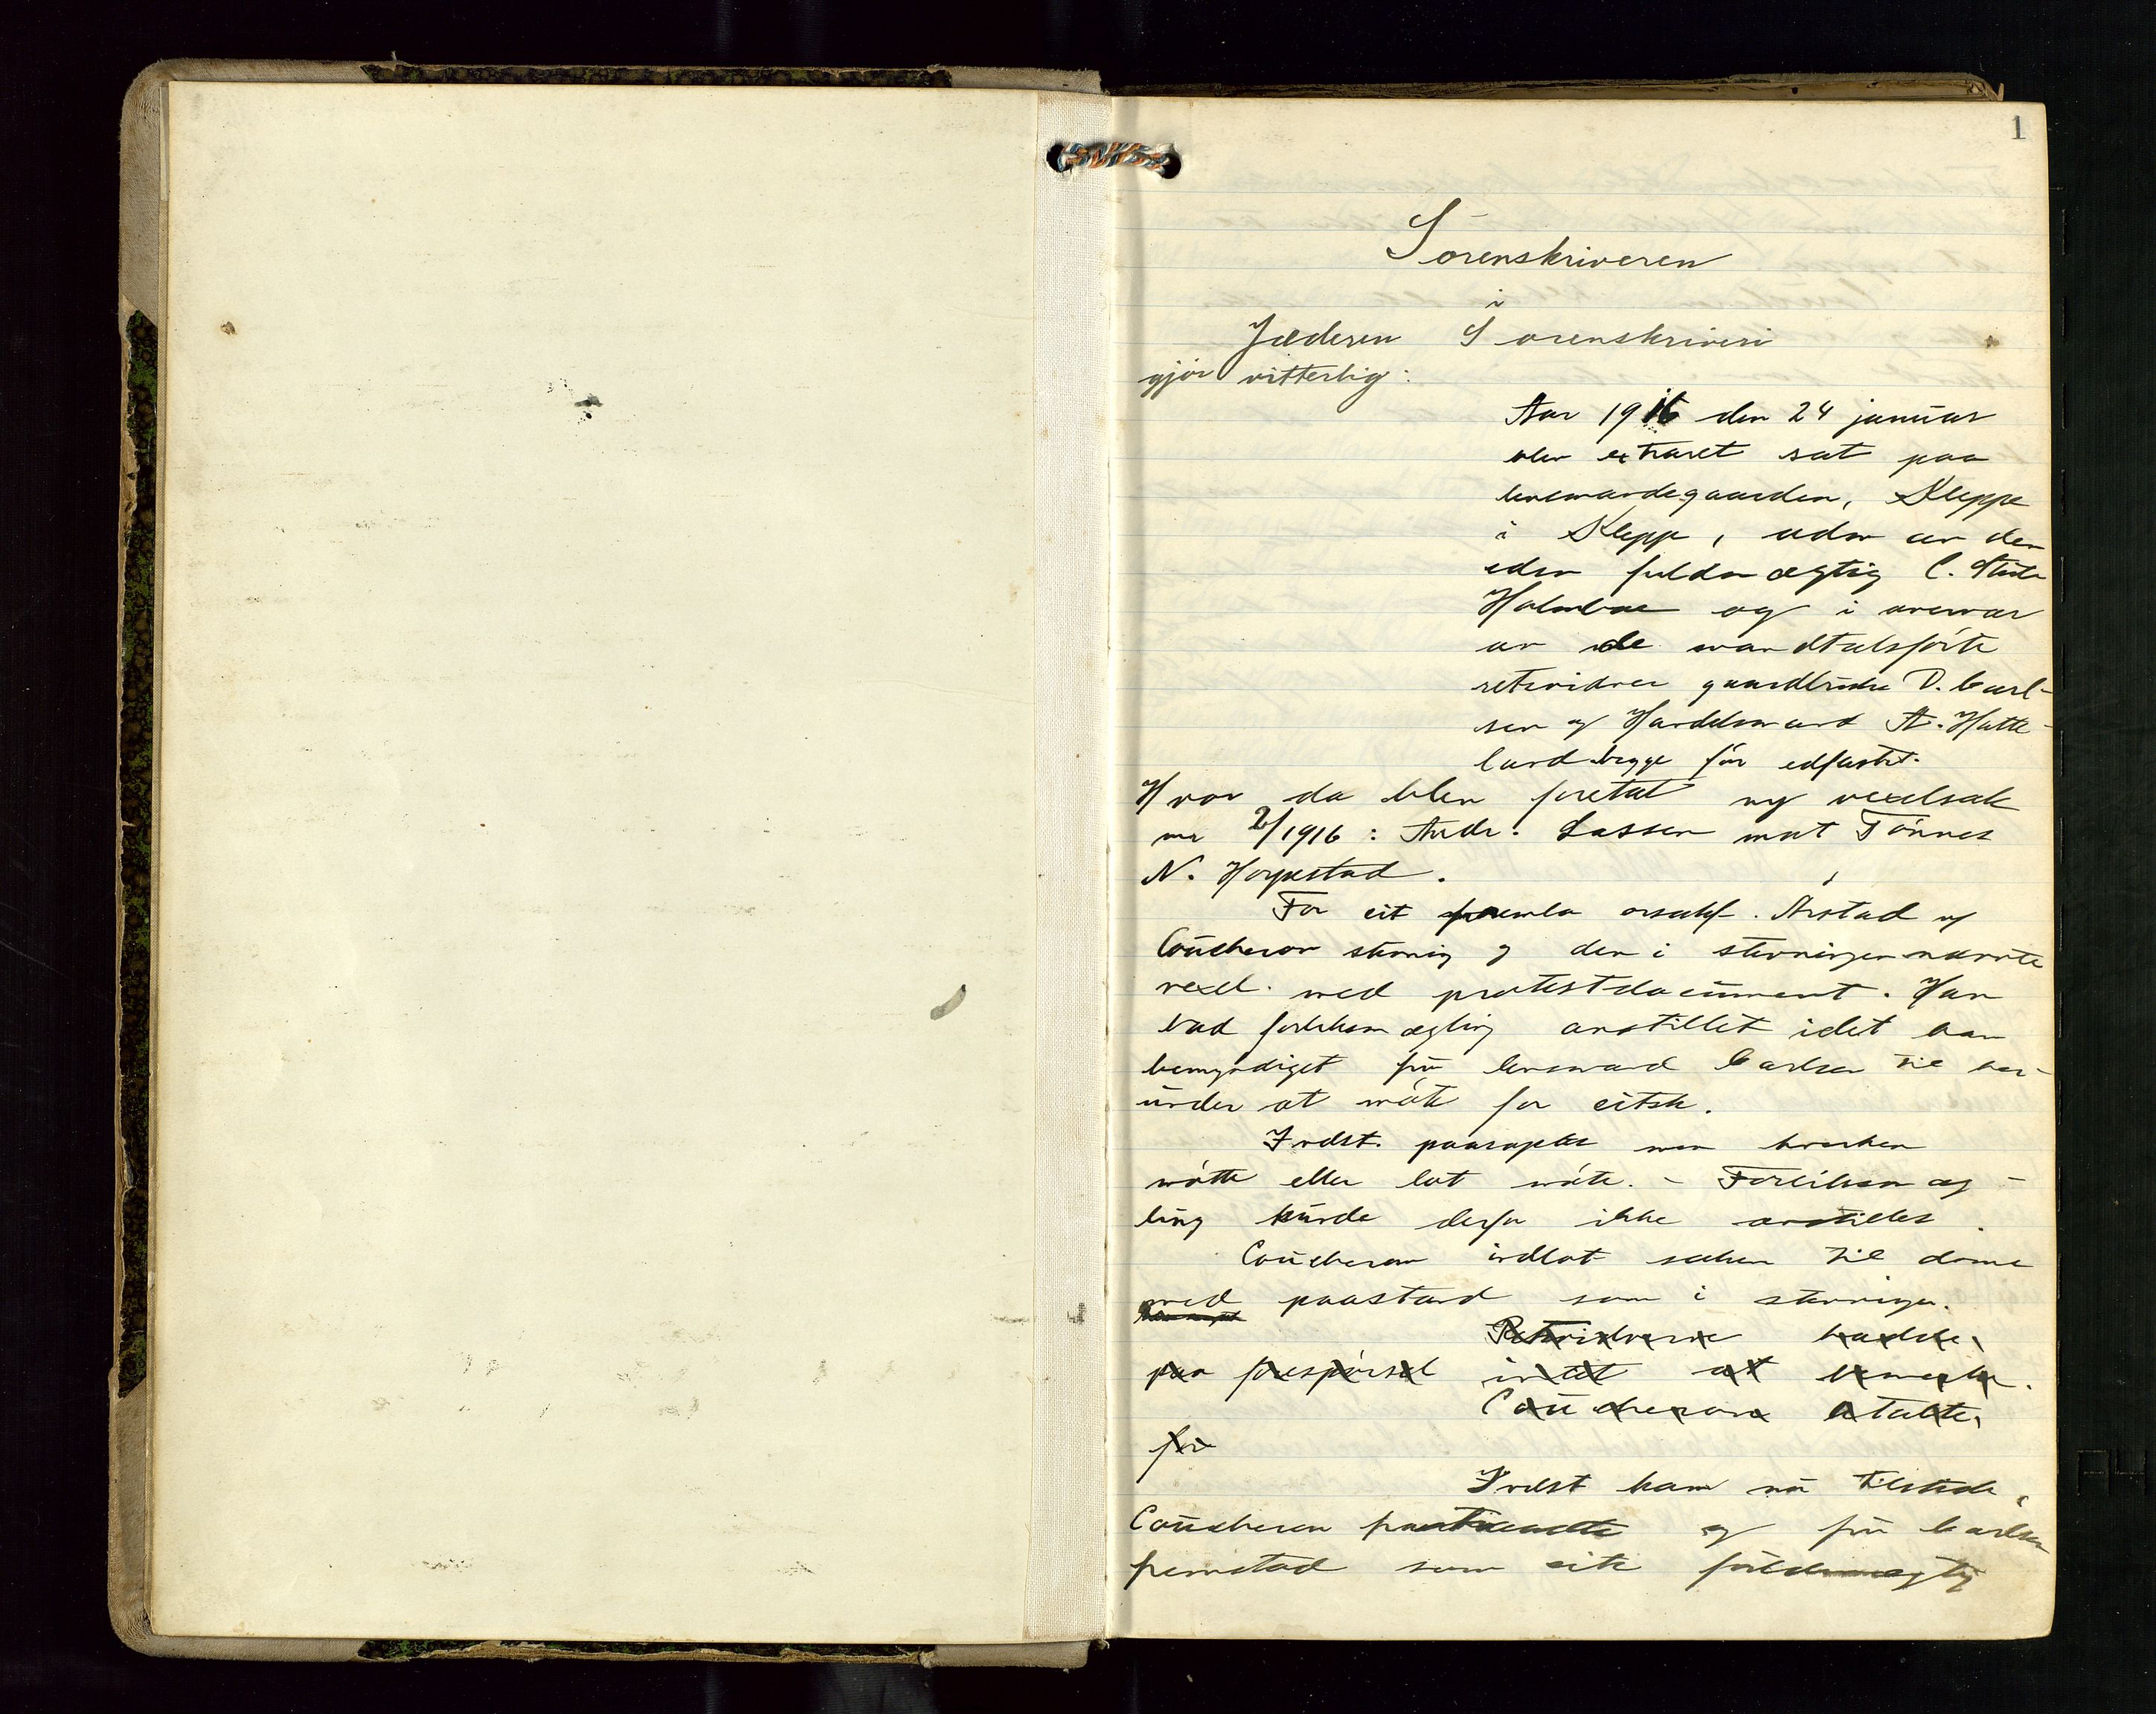 1
Sorenskriveren
i
Jæderen Sorenskriveri
gjør vitterlig:
Aar 1916 den 24 januar
blev extraret sat paa
lensmandsgaarden, Kleppe
i Klepp, adm av den
edsv fuldmægtig C.
Holmboe og i overvær
av de mandtalsførte
retsvidner gaardbruker D. Carl-
sen og Handelsmand A. Hatte-
land begge før edfæstet.
Hvor da blev foretat ny vexelsak
nr 2/1916: Andr. Lassen mot Tönnes
N. Haypestad.
For cit fremla orsakf. Årstad og
Coucheron stevning og den i stevningen nævnte
vexel med protestdocument. Han
bad forliksmægling anstillet idet han
bemyndiget fra lensmand Carlsen til her-
under at møte for citsk.
Indst. paaroptes men hverken
møtte eller lot møte. - Forliksmæg-
ling kunde derfor ikke anstilles.
Coucheron indlot saken til doms
med paastand som i stevningen.
Retsvidnerne hadde,
paa forespørsel intet at bemerke.
Coucheron uttalte,
før
Indst kom nu tilstede,
Coucheron og fra Carlsen
som cits fuldmægtig